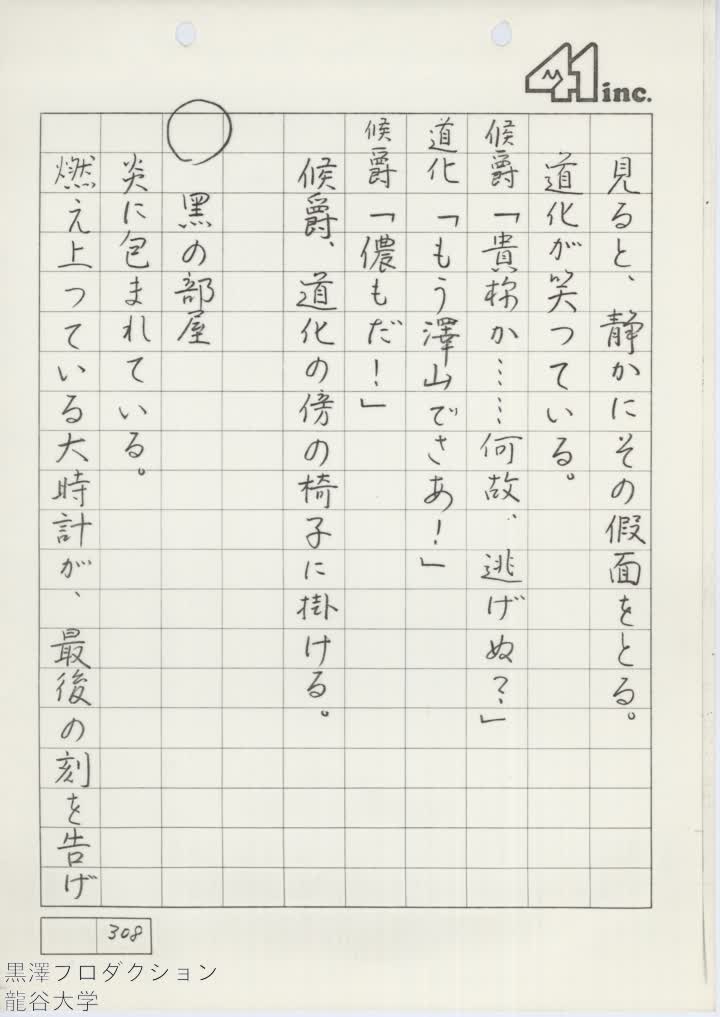 41 inc.
見ると、静かにその假面をとる。
道化が笑つている。
候爵「貴称か……何故、逃げぬ？」
道化「もう澤山でさあ！」
候爵「儂もだ！」
候爵、道化の傍の椅子に掛ける。
○ 黒の部屋
炎に包まれている。
燃え上つている大時計が、最後の刻を告げ
308
黒澤プロダクション
龍谷大学